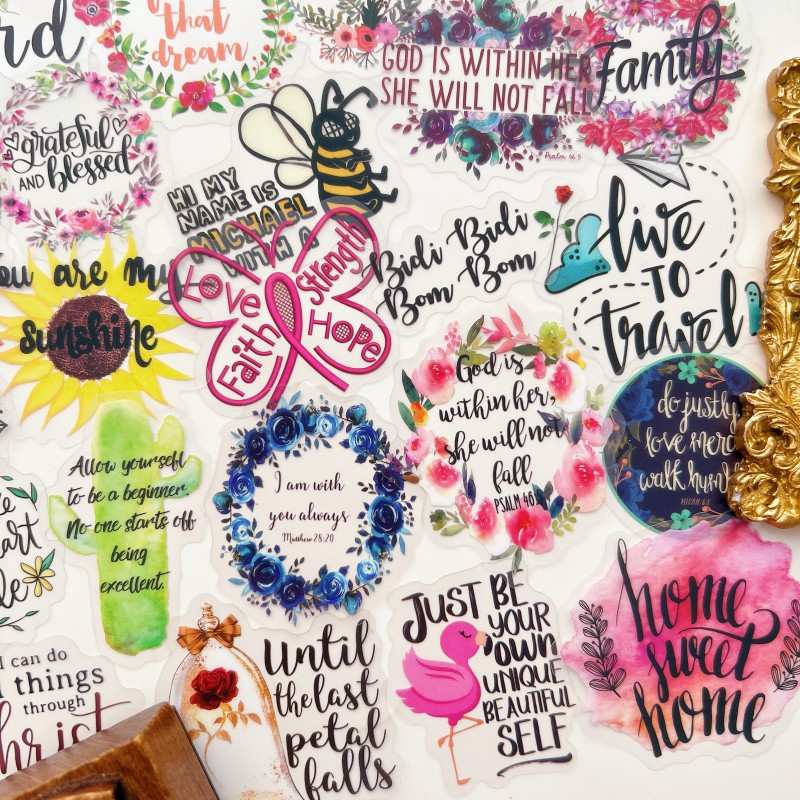 rd
that
dream
GOD IS WITHIN HER
SHE WILL NOT FALL
Psalm 46:5
Family
grateful
AND blessed
HI MY
NAME IS
MICHAEL
WITH A
Love
Strength
Faith
Hope
Bidi Bidi
Bom Bom
live
TO
travel
you are my
sunshine
God is
within her,
she will not
fall
PSALM 46:5
do justly
love mercy
walk humbly
MICAH 6:8
Allow yourself
to be a beginner.
No one starts off
being
excellent.
I am with
you always
Matthew 28:20
I can do
things
through
Christ
Until
the last
petal
falls
JUST BE
YOUR
OWN
UNIQUE
BEAUTIFUL
SELF
home
sweet
home